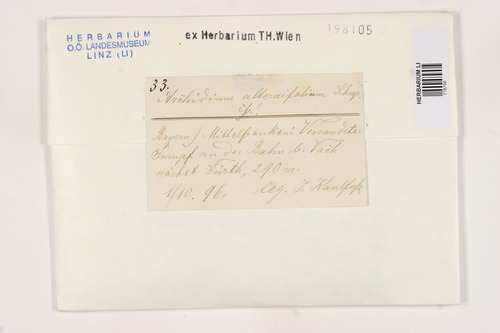 HERBARIUM
O.Ö. LANDESMUSEUM
LINZ (LI)
ex Herbarium TH.Wien
198105
HERBARIUM LI
33.
Archidium alternifolium Schp.
c. fr.
Bayern / Mittelfranken: Versandeter
Sumpf an der Bahn b. Vach
nächst Fürth, 290 m.
1/10. 96. Leg. J. Kaulfuß